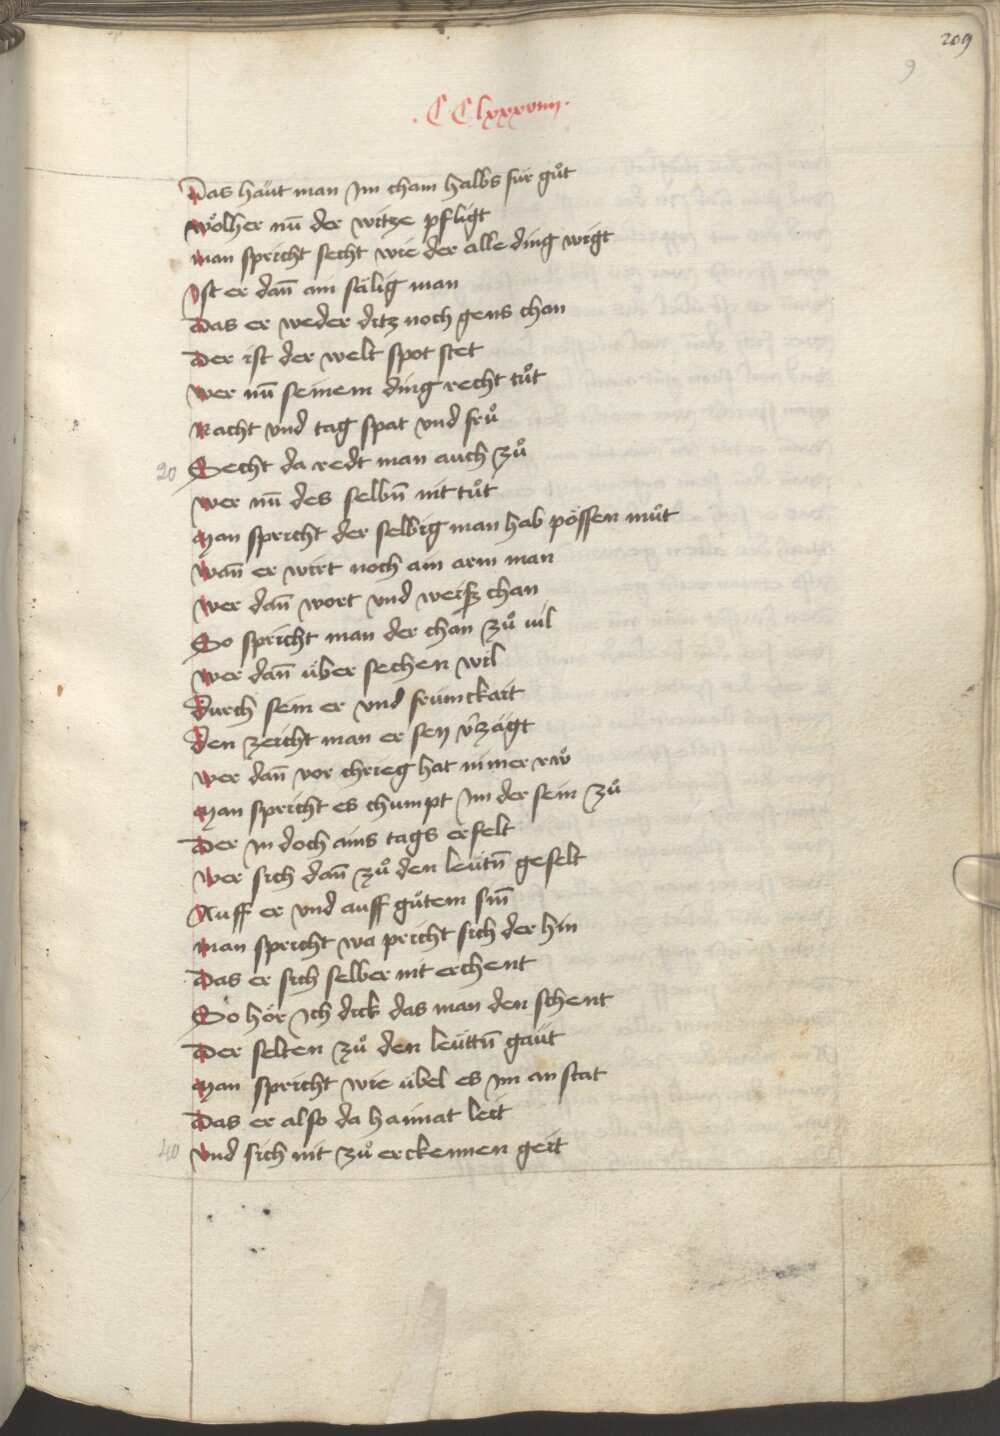 209
9
.CClxxxviiij.
Das haüt man jm cham halbs für gůt
wölher nū der witze pfligt
man spricht secht wie der alle ding wigt
Ist er dañ ain sälig man
Das er weder ditz noch gens chan
Der ist der welt spot stet
wer nū seinem ding recht tůt
Nacht vnd tag spat vnd frů
20 Secht da redt man auch zů
wer nū des selbñ nit tůt
Man spricht der selbig man hab pössen můt
wañ er wirt noch ain arm man
wer dañ wort vnd weisz chan
So spricht man der chan zů uil
wer dañ über sechen wil
durch sein er vnd frümckait
den zeicht man er sey v̄zägt
wer dañ vor chrieg hat nimer rů
Man spricht es chumpt jm der sein zů
Der jn doch ains tags erfelt
wer sich dañ zů den leütñ geselt
Auff er vnd auff gůtem siñ
man spricht wa pricht sich der hin
Das er sich selber nit erchent
So hör ich dick das man den schent
Der selten zů den leüttñ gaüt
Man spricht wie übel es jm an stat
Das er also da haimat leit
40 vnd sich nit zů erckennen geit